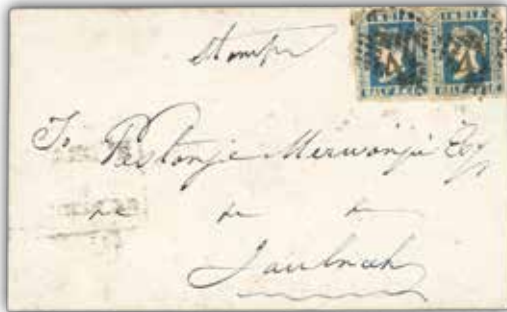 INDIA INDIA
HALF ANNA HALF ANNA
Stamps
To Pestonjee Merwanjee Esqr
&c &c &c
Jaulnah